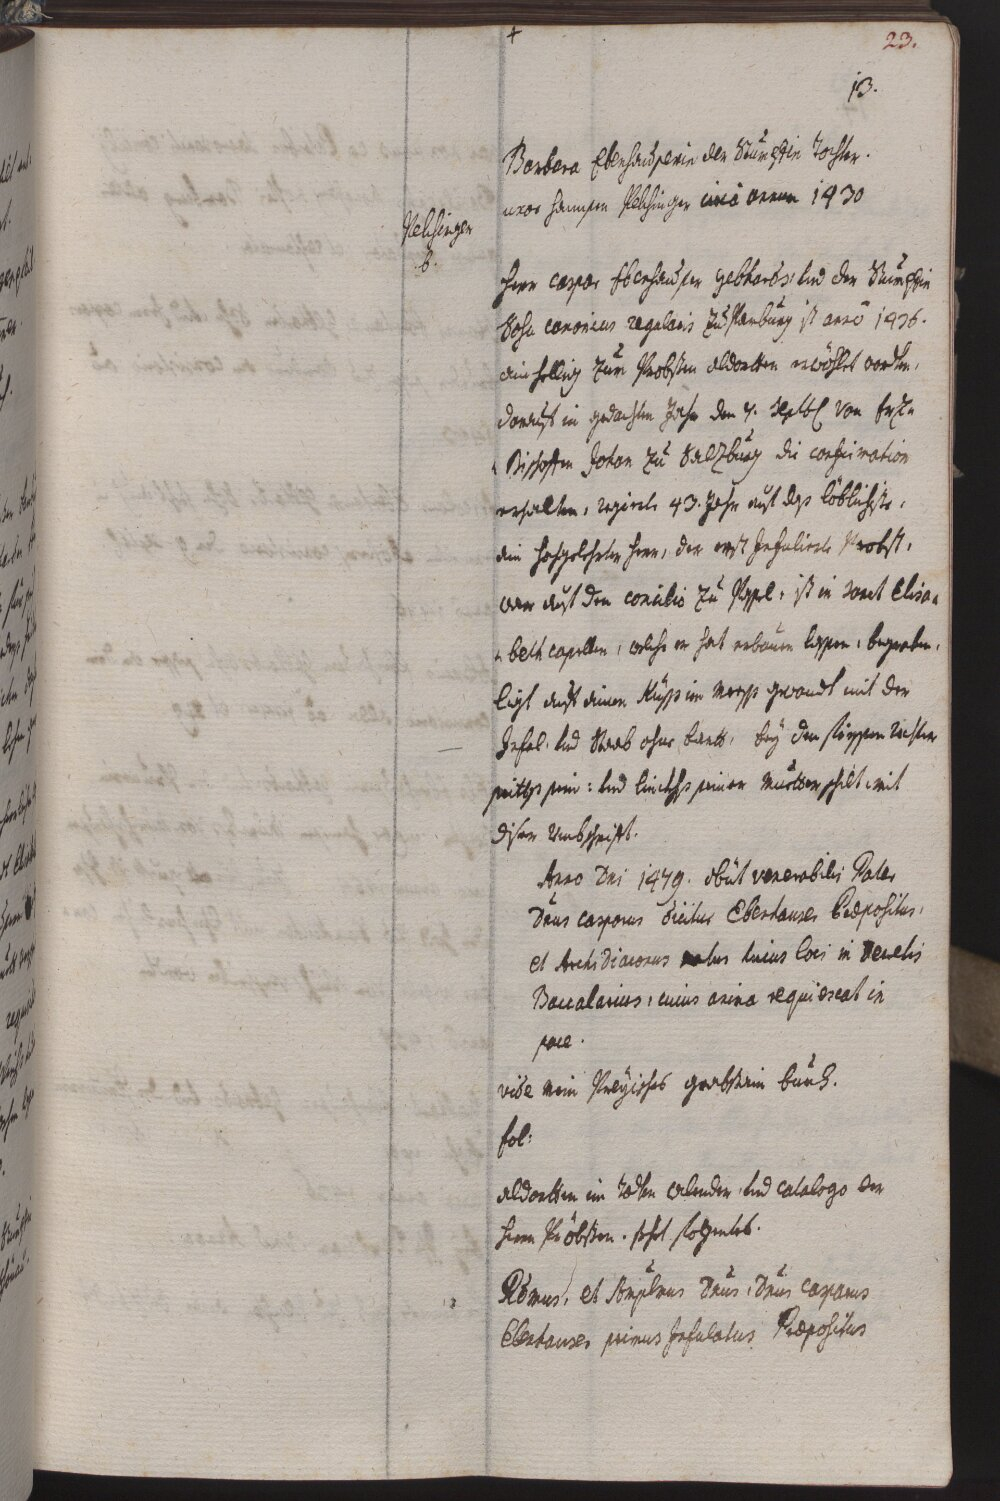 23.
13.
Barbara Ebenhauserin der Stumpfin Tochter.
uxor Hannsen Pelchinger circa annum 1430
Pelchinger
b.
Herr caspar Ebenhauser Gebhards: und der Stumpfin
Sohn canonicus regularis zu Ranburg ist anno 1436.
ainhellig zum Probsten aldortten erwöhlet worden,
darauf in gedachten Jahr den 7. Septb von Erz-
Bischoffen Johan zu Salzburg die confirmation
erhalten, regierte 43. Jahr auf das löblichste,
ein hochgelehrter Herr, der erst Infulierte Probst,
war auf den concilio zu Passel, ist in sanct Elisa-
beth capellen, welche er hat erbauen lassen, begraben,
ligt auf einen Küss im mess gwandt mit der
Infel, und Stab ohne bartt, bey den füessen rechter
seitts sein: und linckhs seiner Muetter schilt, mit
diser Umbschrift.
Anno Dni 1479. obiit venerabilis Pater
Dnus casparus dictus Ebenhauser Præpositus,
et Archidiaconus huius loci in Decretis
Baccalarius, cuius anima requiescat in
pace.
vide mein Preÿisches grabstain buech.
fol:
aldortten im Todten calender, und catalogo der
Herrn Pröbsten. steht folgentes.
Rdmus, et Amplmus Dnus, Dnus casparus
Ebenhauser primus Infulatus Præpositus